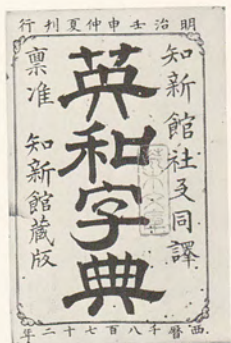 明治壬申仲夏刊行
知新館社友同譯
英和字典
稟准　知新館藏版
西暦千八百七十二年